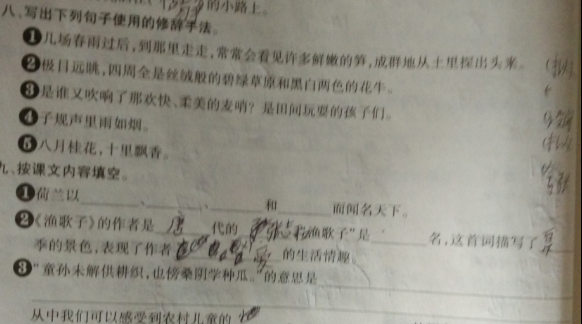 的小路上。
八、写出下列句子使用的修辞手法。
❶几场春雨过后,到那里走走,常常会看见许多鲜嫩的笋,成群地从土里探出头来。(
❷极目远眺,四周全是丝绒般的碧绿草原和黑白两色的花牛。
❸是谁又吹响了那欢快、柔美的麦哨?是田间玩耍的孩子们。
❹子规声里雨如烟。
❺八月桂花,十里飘香。
九、按课文内容填空。
❶荷兰以______、______、______和______而闻名天下。
❷《渔歌子》的作者是 唐 代的 张志和"渔歌子"是______名,这首词描写了
季的景色,表现了作者 的生活情趣。
❸"童孙未解供耕织,也傍桑阴学种瓜。"的意思是
从中我们可以感受到农村儿童的